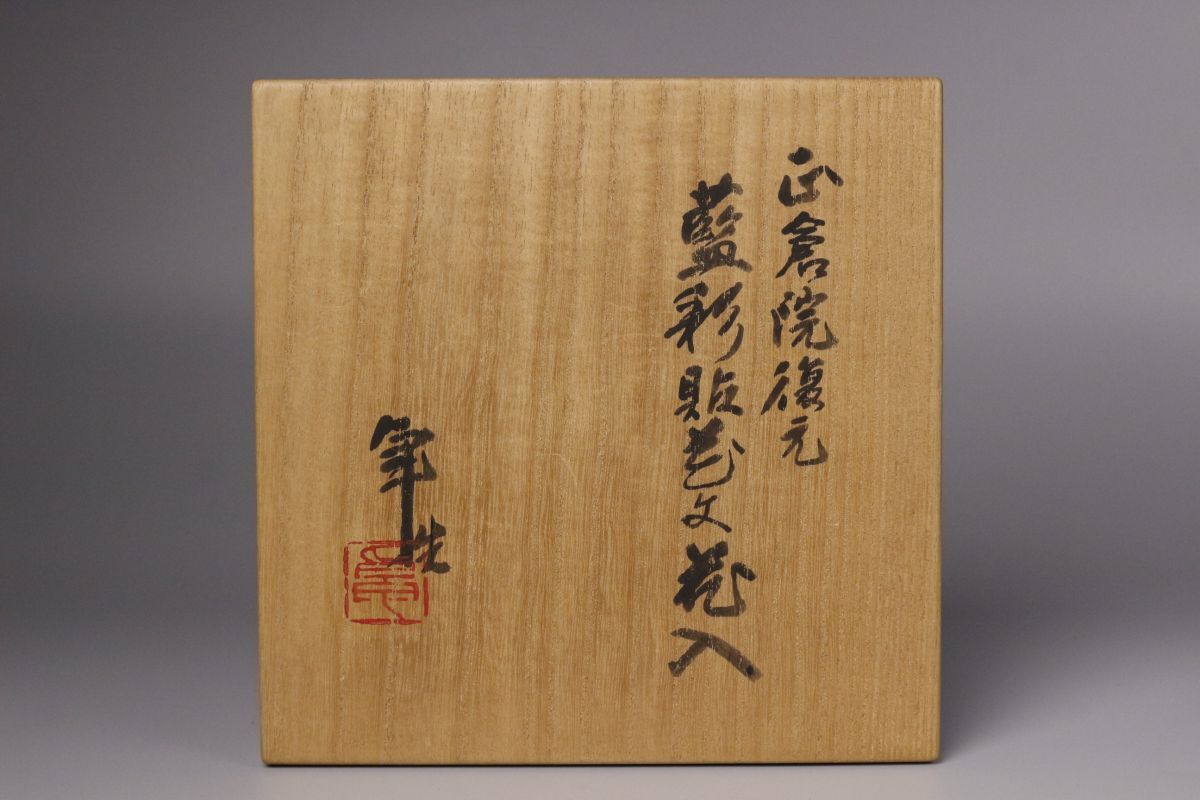 正倉院復元
藍彩貼花文花入